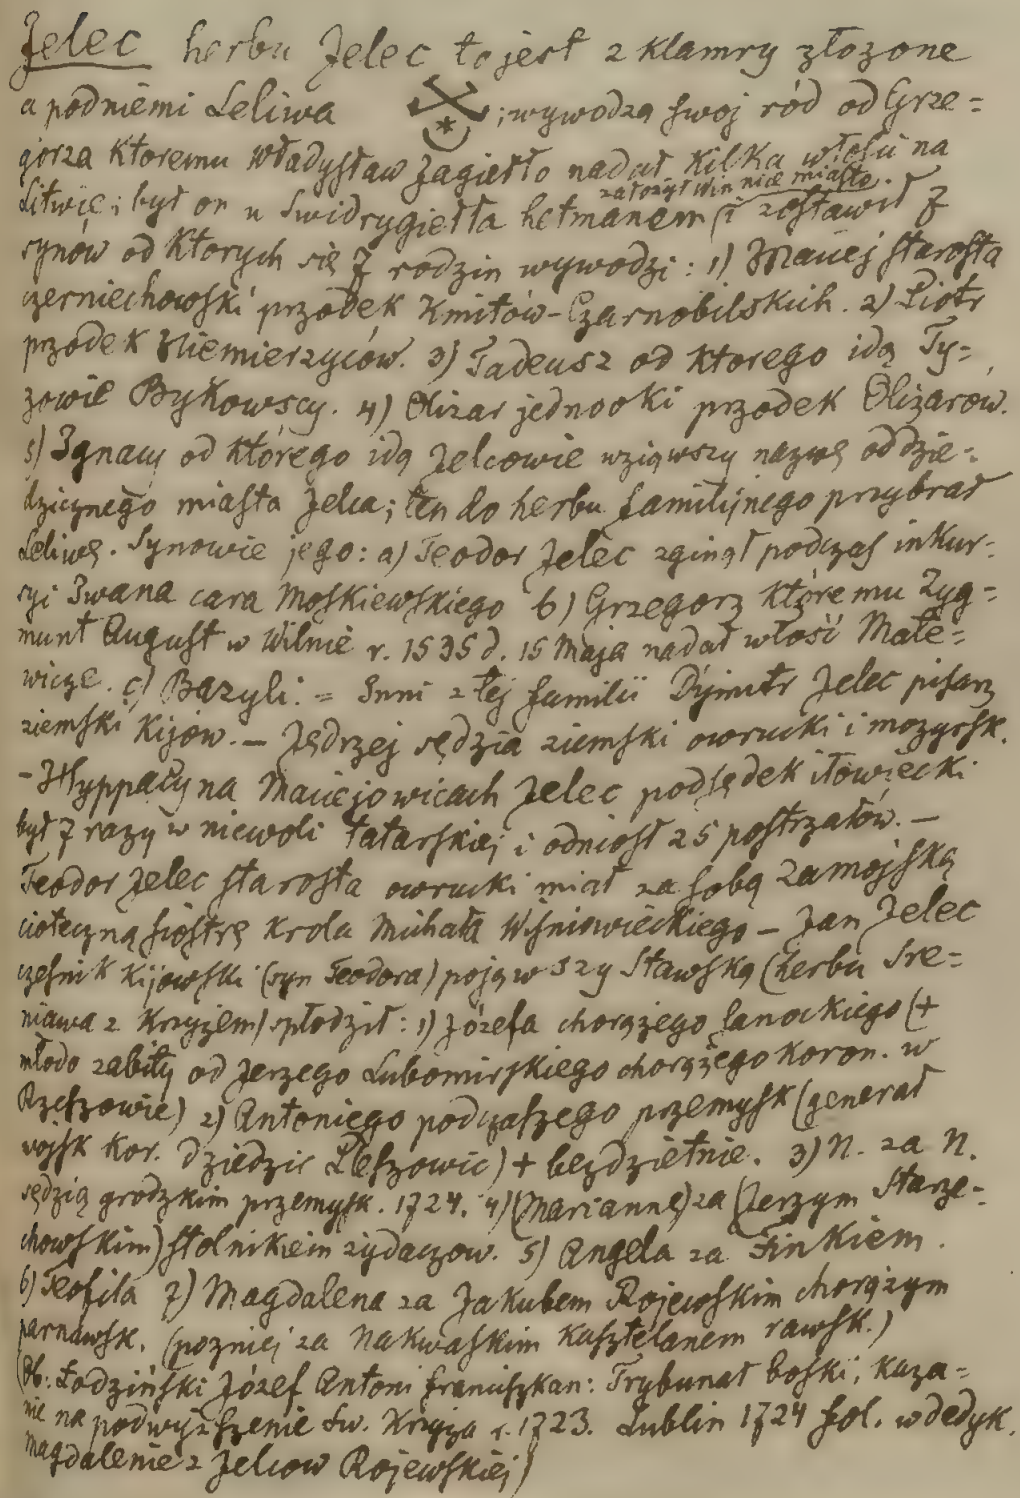 Jelec herbu Jelec to jest 2 klamry złożone
a pod niemi Leliwa ; wywodzą swoj ród od Grze=
gorza ktoremu Władysław Jagiełło nadał kilka włości na
założył Winnicę miasto.
Litwie; był on u Swidrygiełła hetmanem (i zostawił 7
synów od ktorych się 7 rodzin wywodzi: 1) Maciej starosta
czerniechowski przodek Kmitów-Czarnobilskich. 2) Piotr
przodek Niemierzyców. 3) Tadeusz od ktorego idą Ty=
zowie Bykowscy. 4) Olizar jednooki przodek Olizarów.
5) Ignacy od którego idą Jelcowie wziąwszy nazwę od dzie=
dzicznego miasta Jelca; ten do herbu familijnego przybrał
Leliwę. Synowie jego: a) Teodor Jelec zginął podczas inkur=
syi Iwana cara Moskiewskiego b) Grzegorz któremu Zyg=
munt August w Wilnie r. 1535 d. 15 Maja nadał włość Mate=
wicze. c) Bazyli. = Inni z tej familii Dymitr Jelec pisarz
ziemski kijow. — Jędrzej sędzia ziemski owrucki i mozyrsk.
– Hyppacy na Maciejowicach Jelec podsędek
był 7 razy w niewoli tatarskiej i odniosł 25 postrzałów. —
Teodor Jelec starosta owrucki miał za sobą Zamojską
cioteczną siostrę krola Michała Wiśniowieckiego – Jan Jelec
cześnik kijowski (syn Teodora) pojąwszy Stawską (herbu Sre=
niawa z krzyżem) spłodził: 1) Józefa chorążego sanockiego (+
młodo zabity od Jerzego Lubomirskiego chorążego koron. w
Rzeszowie) 2) Antoniego podczaszego przemysk (generał
wojsk kor. dziedzic Leszowic) + bezdzietnie. 3) N. za N.
sędzią grodzkim przemysk. 1724. 4) (Mariannę) za (Jerzym Starze=
chowskim) stolnikiem zydaczow. 5) Angela za Finkiem.
6) Teofila 7) Magdalena za Jakubem Rojewskim chorążym
parnawsk. (pozniej za Nakwaskim kasztelanem rawsk.)
(Ob: Łodziński Józef Antoni franciszkan: Trybunał boski, kaza=
nie na podwyższenie Sw. Krzyża r. 1723. Lublin 1724 fol. w dedyk.
Magdalenie z Jelcow Rojewskiej)